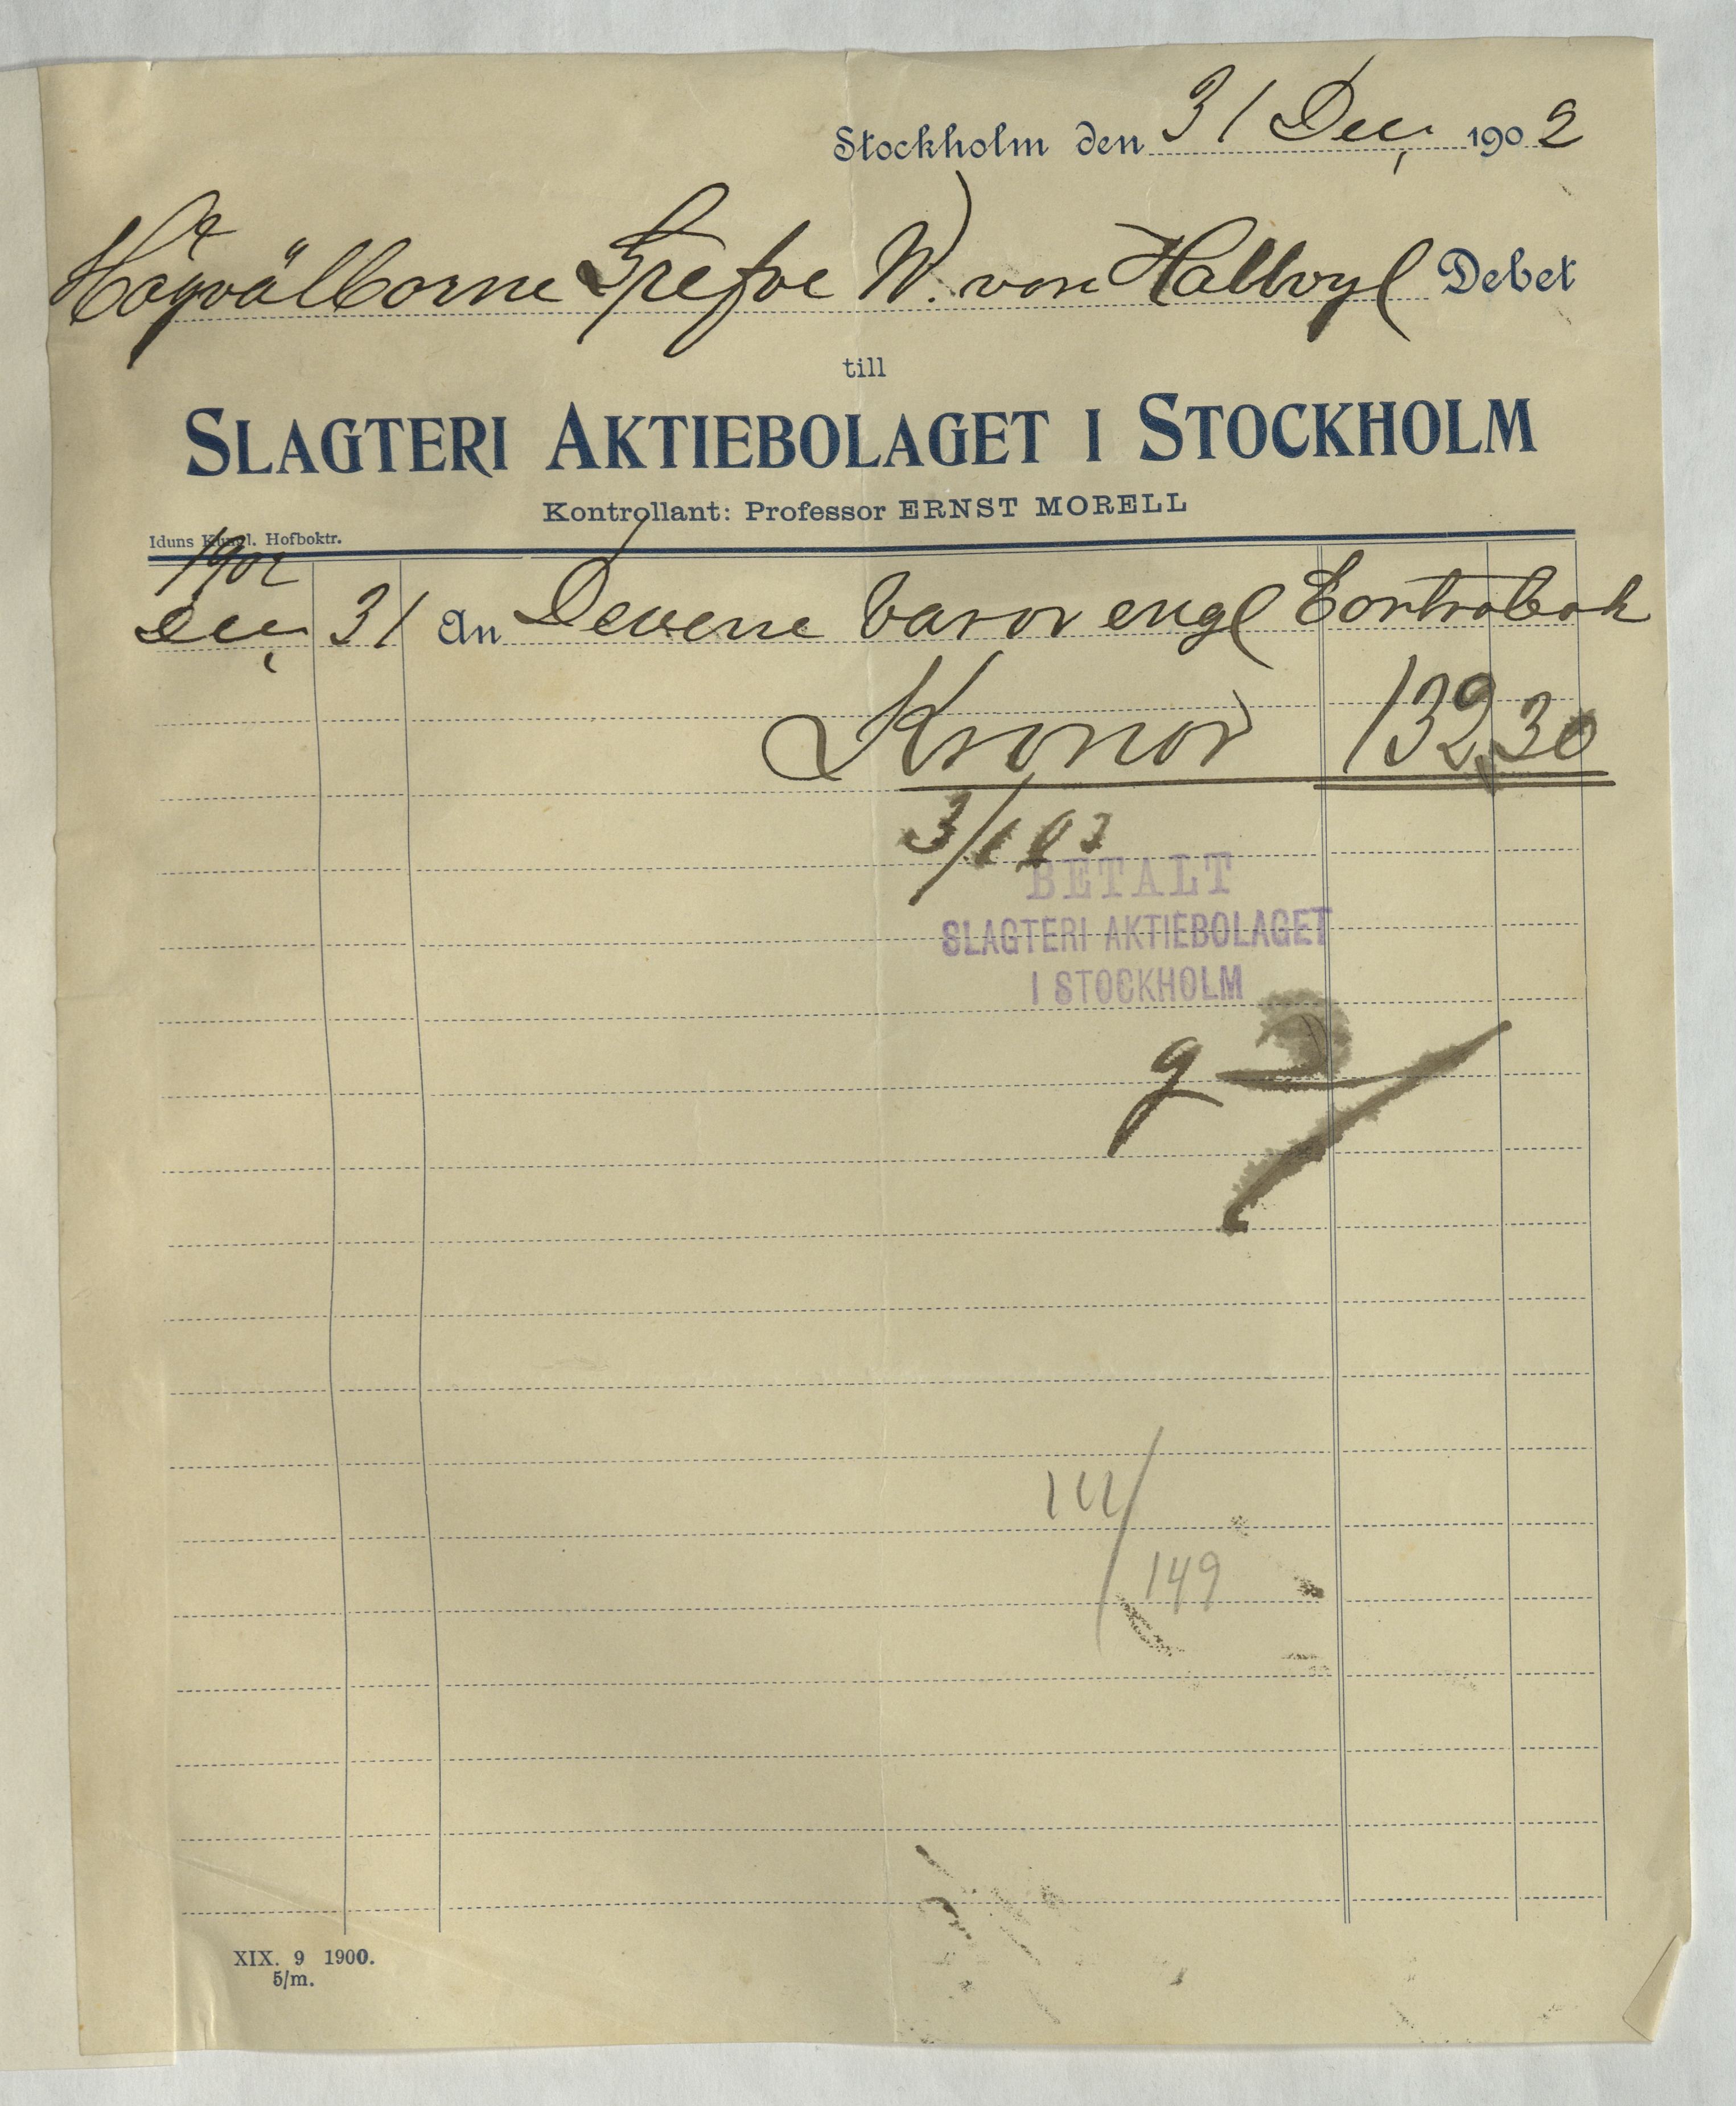 Stockholm den 31 Dec, 1902
Högvälborne Grefve W. von Hallwyl Debet
till
SLAGTERI AKTIEBOLAGET I STOCKHOLM
Kontrollant: Professor ERNST MORELL
Iduns Kungl. Hofboktr.
1902
Dec, 31 An Diverse varor engl Contrabok
Kronor 132,30
3/1 03
BETALT
SLAGTERI AKTIEBOLAGET
I STOCKHOLM
149
XIX. 9 1900.
5/m.